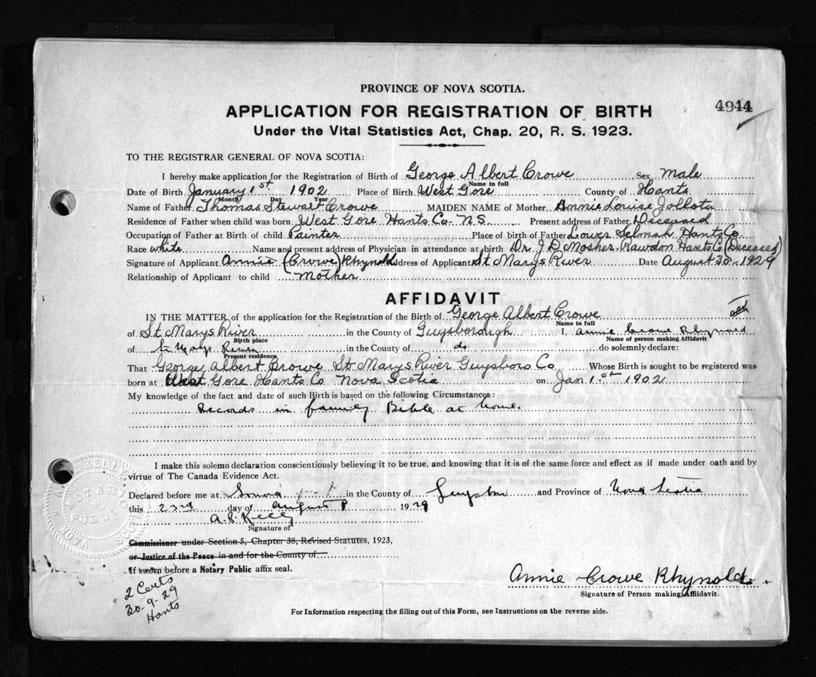 PROVINCE OF NOVA SCOTIA.
4944
APPLICATION FOR REGISTRATION OF BIRTH
Under the Vital Statistics Act, Chap. 20, R. S. 1923.
TO THE REGISTRAR GENERAL OF NOVA SCOTIA:
I hereby make application for the Registration of Birth of George Albert Crowe Sex Male
Name in full
Date of Birth January 1st 1902 Place of Birth West Gore County of Hants
Month Day Year
Name of Father Thomas Stewart Crowe MAIDEN NAME of Mother Annie Louise
Residence of Father when child was born West Gore Hants Co. N.S. Present address of Father Deceased
Occupation of Father at Birth of child Painter Place of birth of Father Lower Selmah Hants Co
Race white Name and present address of Physician in attendance at birth Dr. J. D. Mosher Rawdon Hants Co (Deceased)
Signature of Applicant Annie (Crowe) Rhynold Address of Applicant St Marys River Date August 30 - 1929
Relationship of Applicant to child Mother
AFFIDAVIT
IN THE MATTER of the application for the Registration of the Birth of George Albert Crowe
Name in full
of St Marys River in the County of Guysborough I, Annie Crowe Rhynold
Birth place Name of person making Affidavit
of St Marys River in the County of do do solemnly declare:
Present residence
That George Albert Crowe St Marys River Guysboro Co Whose Birth is sought to be registered was
born at West Gore Hants Co Nova Scotia on Jan 1st 1902
My knowledge of the fact and date of such Birth is based on the following Circumstances:
Records in family Bible at home.
I make this solemn declaration conscientiously believing it to be true, and knowing that it is of the same force and effect as if made under oath and by
virtue of The Canada Evidence Act.
Declared before me at in the County of and Province of Nova Scotia
this 23rd day of August 1929
A. Kelly
Signature of
Commissioner under Section 5, Chapter 38, Revised Statutes, 1923,
or Justice of the Peace in and for the County of
If sworn before a Notary Public affix seal.
Annie Crowe Rhynold.
Signature of Person making Affidavit.
2 Certs
20-9-29
Hants
For Information respecting the filling out of this Form, see Instructions on the reverse side.